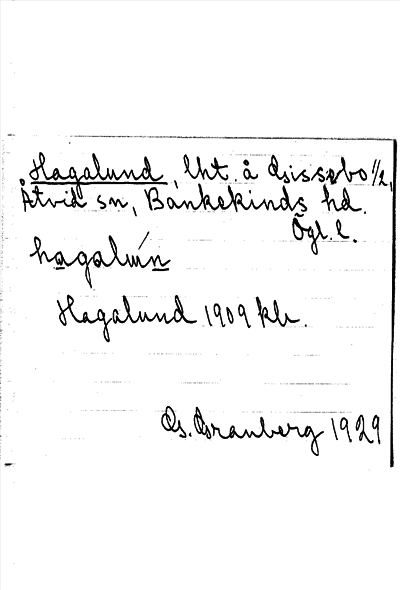 Hagalund, lht. å Gissebo 1/2,
Åtvid sn, Bankekinds hd.
Ögl. l.
hagalún
Hagalund 1909 kb.
G. Granberg 1929